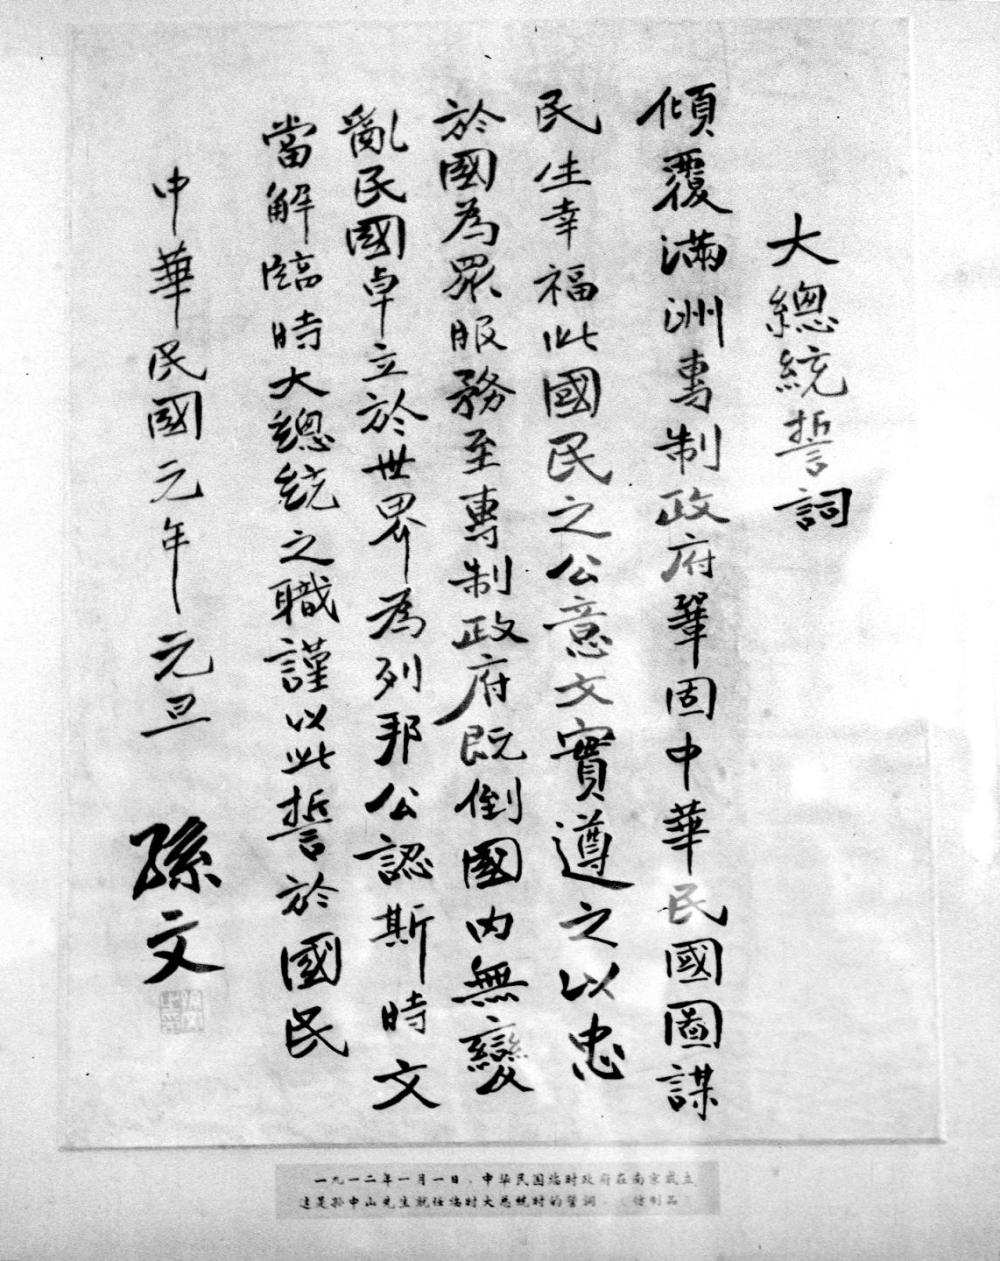 大總統誓詞
傾覆滿洲專制政府鞏固中華民國圖謀
民生幸福此國民之公意文實遵之以忠
於國為眾服務至專制政府既倒國內無變
亂民國卓立於世界為列邦公認斯時文
當解臨時大總統之職謹以此誓於國民
中華民國元年元旦 孫文
一九一二年一月一日，中华民国临时政府在南京成立
这是孙中山先生就任临时大总统时的誓词。（仿制品）